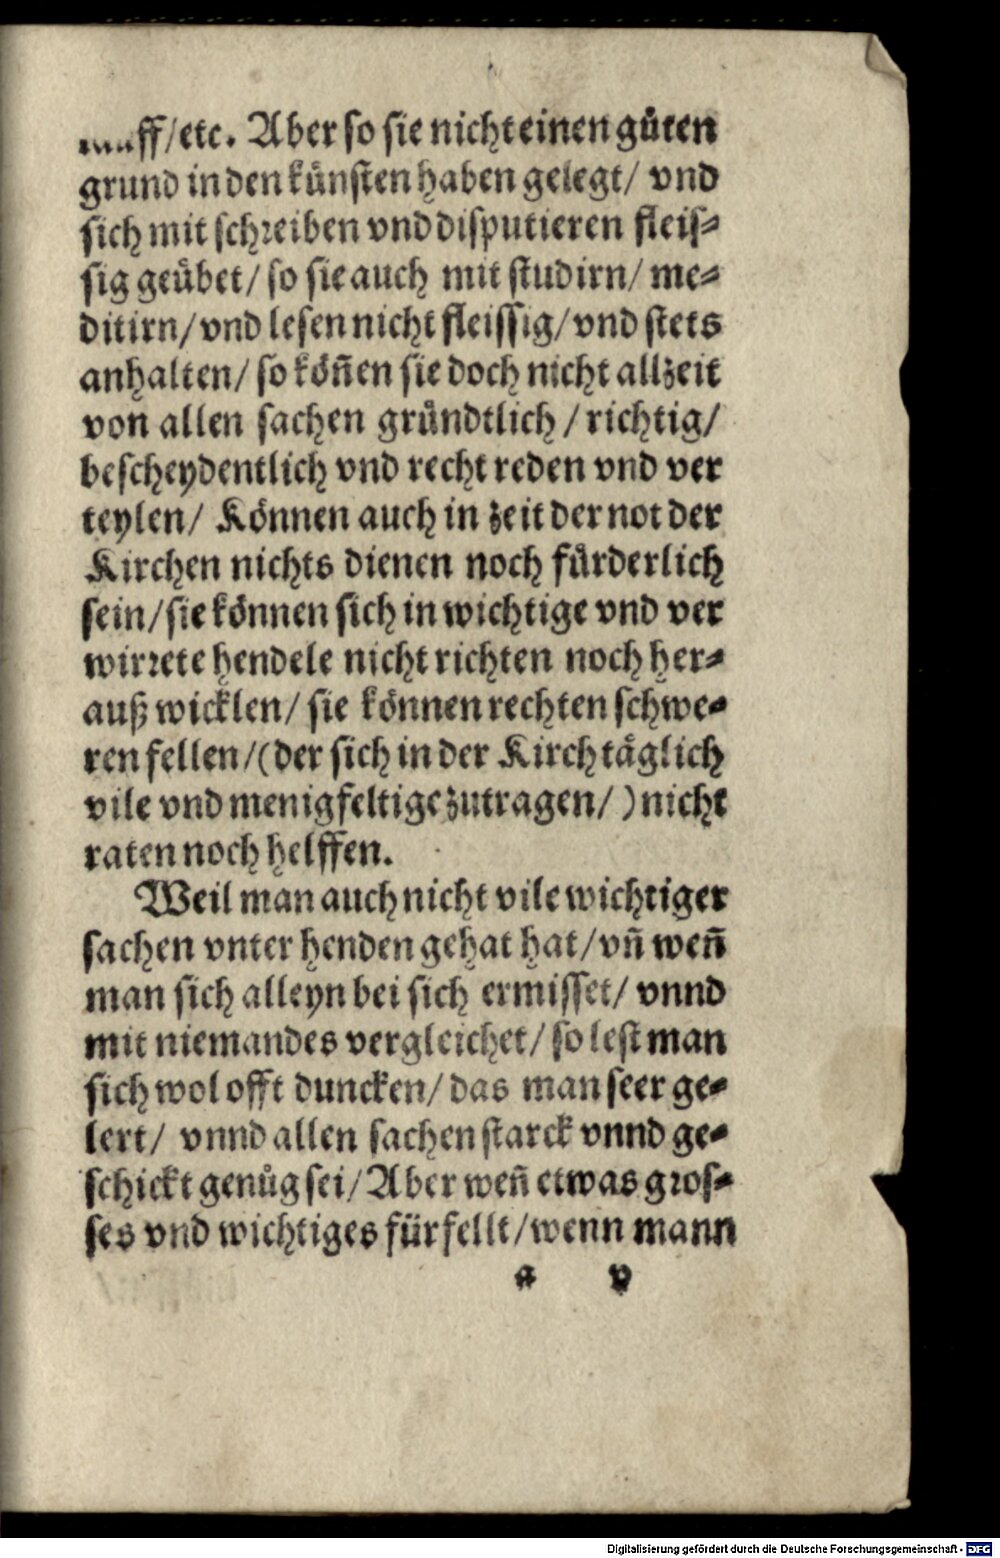 /etc. Aber so sie nicht einen gůten
grund in den künsten haben gelegt/ vnd
sich mit schreiben vnd disputieren fleis⸗
sig geübet/ so sie auch mit studirn/ me⸗
ditirn/ vnd lesen nicht fleissig/ vnd stets
anhalten/ so köñen sie doch nicht allzeit
von allen sachen gründtlich / richtig/
bescheydentlich vnd recht reden vnd ver
teylen/ Können auch in zeit der not der
Kirchen nichts dienen noch fürderlich
sein/ sie können sich in wichtige vnd ver
wirrete hendele nicht richten noch her⸗
auß wicklen/ sie können rechten schwe⸗
ren fellen/ (der sich in der Kirch täglich
vile vnd menigfeltige zutragen/ ) nicht
raten noch helffen.
Weil man auch nicht vile wichtiger
sachen vnter henden gehat hat/ vñ weñ
man sich alleyn bei sich ermisset/ vnnd
mit niemandes vergleichet/ so lest man
sich wol offt duncken/ das man seer ge⸗
lert/ vnnd allen sachen starck vnnd ge⸗
schickt genůg sei/ Aber weñ etwas gros⸗
ses vnd wichtiges fürfellt/ wenn mann
a v
Digitalisierung gefördert durch die Deutsche Forschungsgemeinschaft - DFG